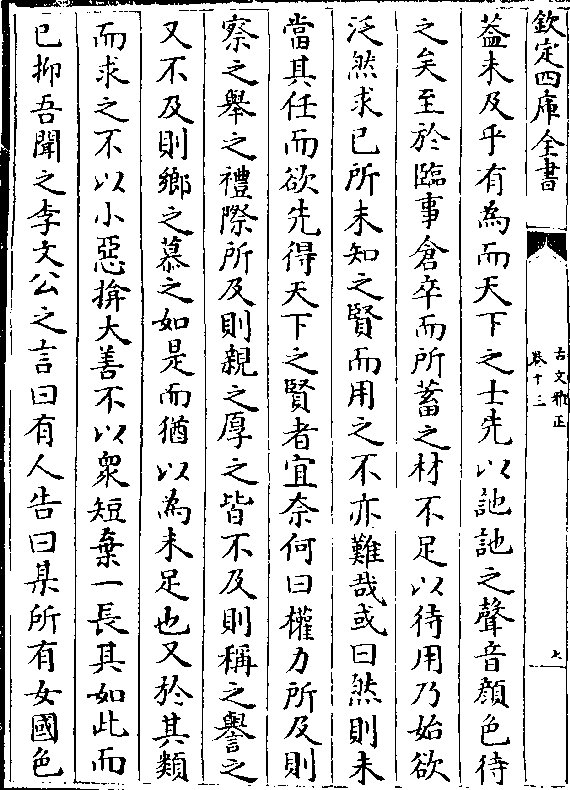 欽定四庫全書
古文雅正
卷十三
七
葢未及乎有為而天下之士先以訑訑之聲音顔色待
之矣至於臨事倉卒而所蓄之材不足以待用乃始欲
泛然求已所未知之賢而用之不亦難哉或曰然則未
當其任而欲先得天下之賢者宜奈何曰權力所及則
察之舉之禮際所及則親之厚之皆不及則稱之譽之
又不及則鄉之慕之如是而猶以為未足也又於其類
而求之不以小惡揜大善不以衆短棄一長其如此而
已抑吾聞之李文公之言曰有人告曰某所有女國色